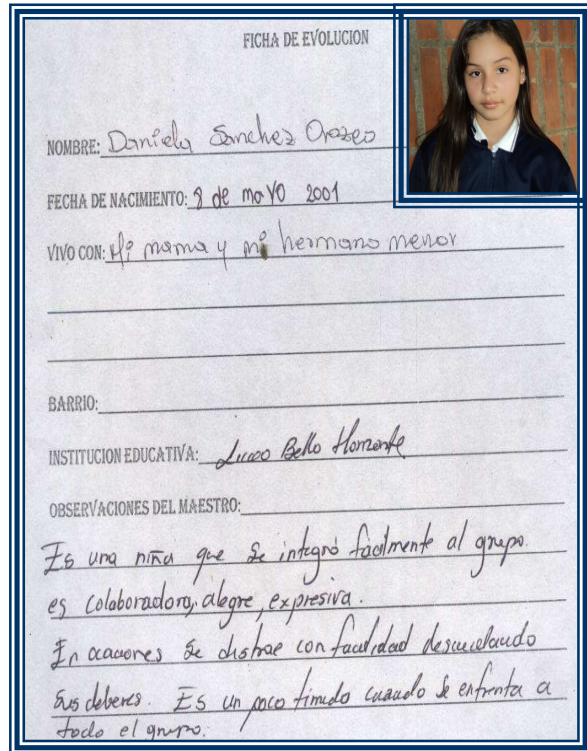 FICHA DE EVOLUCION
NOMBRE: Daniela Sanchez Orozco
FECHA DE NACIMIENTO: 8 de mayo 2001
VIVO CON: Mi mama y mi hermano menor
BARRIO:
INSTITUCION EDUCATIVA: Liceo Bello Horizonte
OBSERVACIONES DEL MAESTRO:
Es una niña que se integró facilmente al grupo.
es colaboradora, alegre, expresiva.
En ocasiones se distrae con facilidad descuidando
sus deberes. Es un poco timida cuando se enfrenta a
todo el grupo.